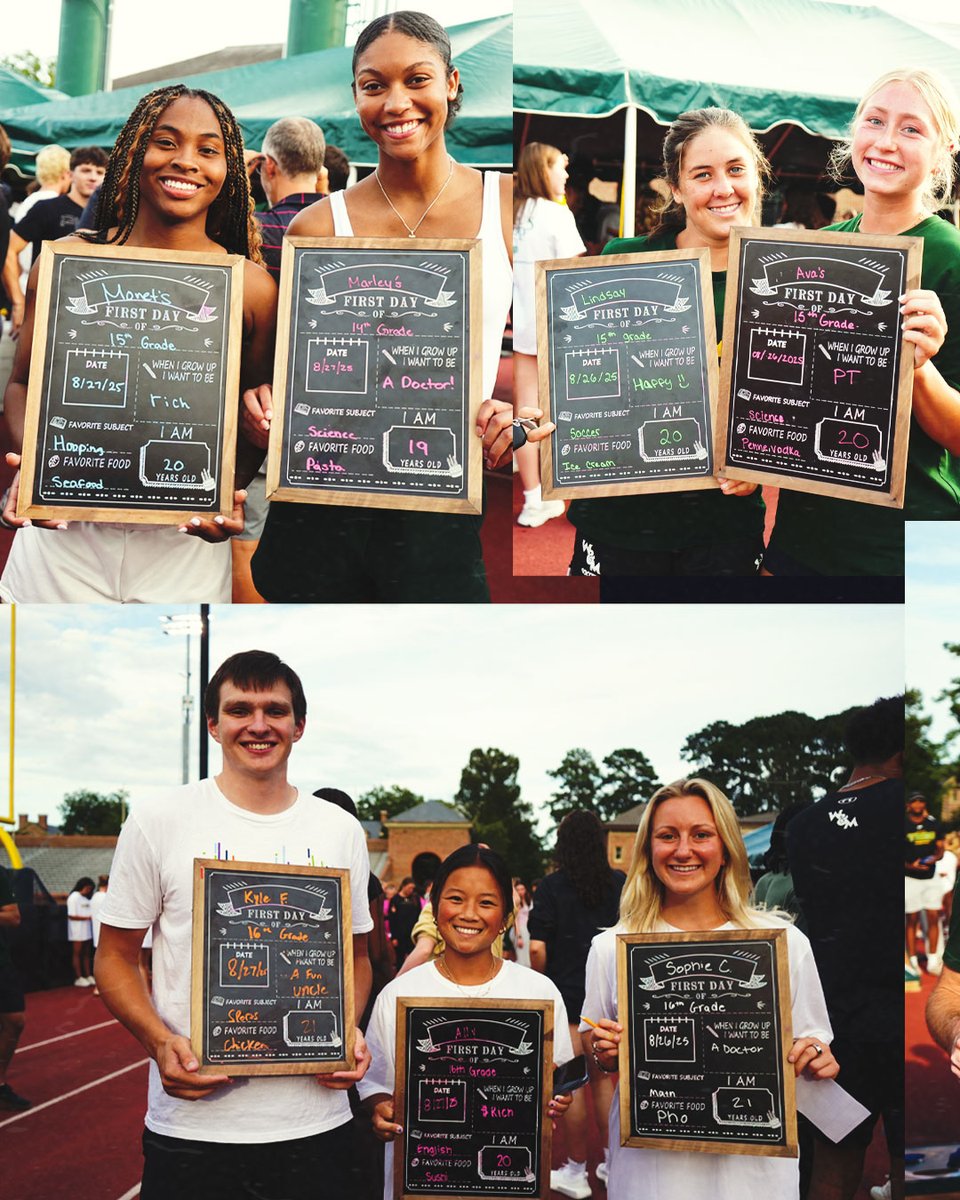 Monet's
FIRST DAY
OF
15th Grade
DATE
8/27/25
WHEN I GROW UP
I WANT TO BE
rich
FAVORITE SUBJECT
Hooping
FAVORITE FOOD
Seafood
I AM
20
YEARS OLD
Marley's
FIRST DAY
OF
14th Grade
DATE
8/27/25
WHEN I GROW UP
I WANT TO BE
A Doctor!
FAVORITE SUBJECT
Science
FAVORITE FOOD
Pasta
I AM
19
YEARS OLD
Lindsay
FIRST DAY
OF
15th grade
DATE
8/26/25
WHEN I GROW UP
I WANT TO BE
Happy !!
FAVORITE SUBJECT
Soccer
FAVORITE FOOD
Ice Cream
I AM
20
YEARS OLD
Ava's
FIRST DAY
OF
15th Grade
DATE
08/26/2025
WHEN I GROW UP
I WANT TO BE
PT
FAVORITE SUBJECT
Science
FAVORITE FOOD
Penne vodka
I AM
20
YEARS OLD
Kyle F
FIRST DAY
OF
16th Grade
DATE
8/27/25
WHEN I GROW UP
I WANT TO BE
A Fun
Uncle
FAVORITE SUBJECT
FAVORITE FOOD
Chicken
I AM
21
YEARS OLD
Ally
FIRST DAY
OF
16th Grade
DATE
8/27/25
WHEN I GROW UP
I WANT TO BE
$ Rich
FAVORITE SUBJECT
English
FAVORITE FOOD
Sushi
I AM
20
YEARS OLD
Sophie C.
FIRST DAY
OF
16th Grade
DATE
8/26/25
WHEN I GROW UP
I WANT TO BE
A Doctor
FAVORITE SUBJECT
Math
FAVORITE FOOD
Pho
I AM
21
YEARS OLD
W&M